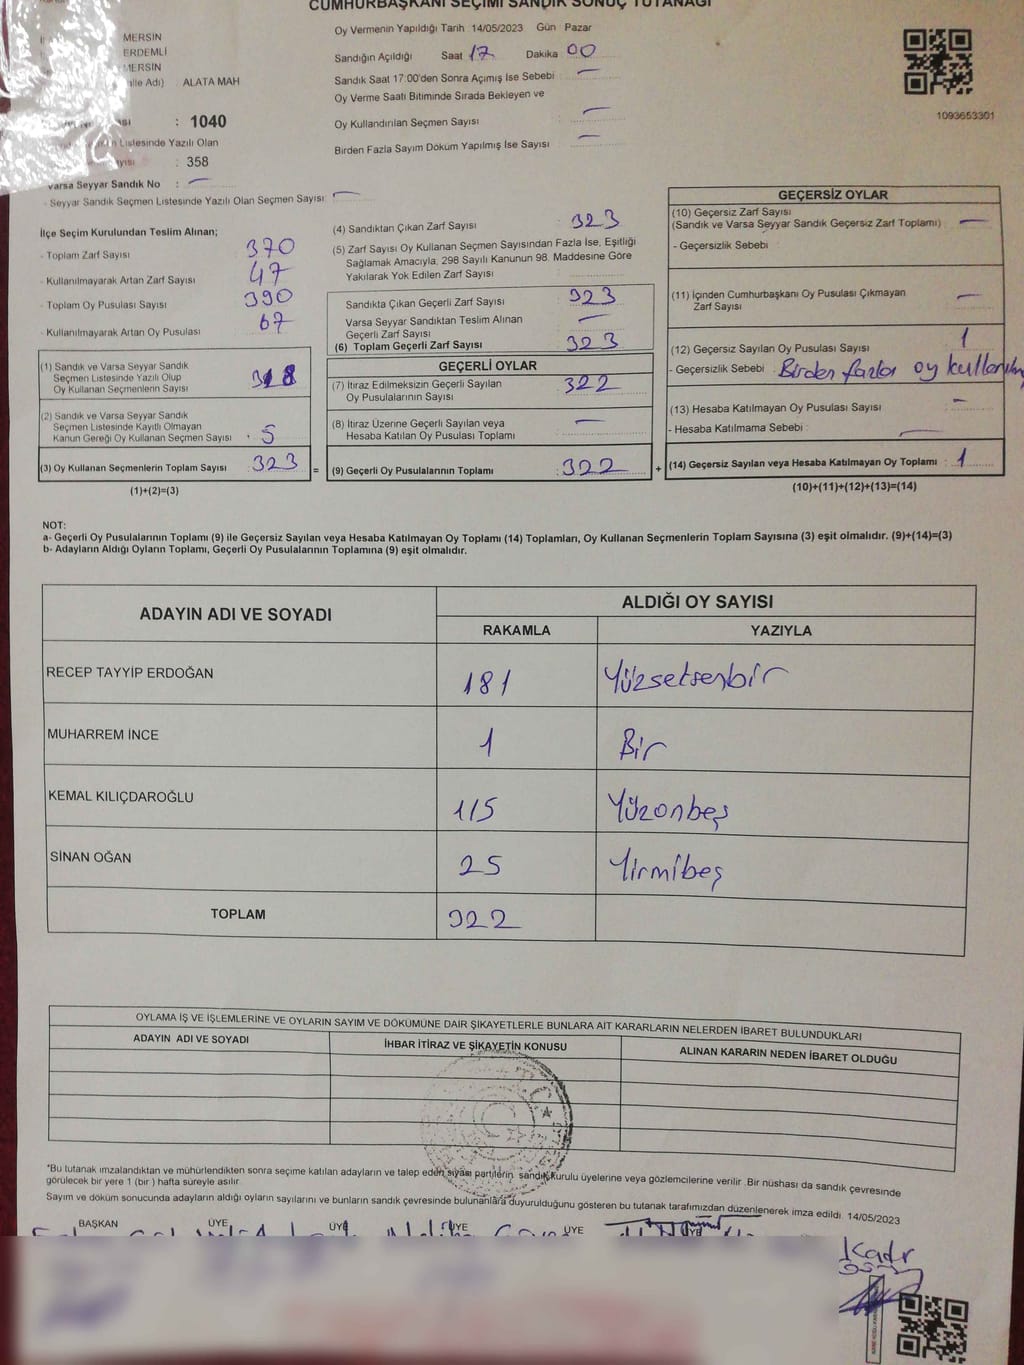 CUMHURBAŞKANI SEÇİMİ SANDIK SONUÇ TUTANAĞI
MERSİN
ERDEMLİ
MERSİN
Adı) ALATA MAH
: 1040
Listesinde Yazılı Olan
: 358
Varsa Seyyar Sandık No : —
- Seyyar Sandık Seçmen Listesinde Yazılı Olan Seçmen Sayısı: —
Oy Vermenin Yapıldığı Tarih 14/05/2023 Gün Pazar
Sandığın Açıldığı Saat 17 Dakika 00
Sandık Saat 17:00'den Sonra Açımış İse Sebebi —
Oy Verme Saati Bitiminde Sırada Bekleyen ve
Oy Kullandırılan Seçmen Sayısı —
Birden Fazla Sayım Döküm Yapılmış İse Sayısı —
1093653301
İlçe Seçim Kurulundan Teslim Alınan;
- Toplam Zarf Sayısı 370
- Kullanılmayarak Artan Zarf Sayısı 47
- Toplam Oy Pusulası Sayısı 390
- Kullanılmayarak Artan Oy Pusulası 67
(1) Sandık ve Varsa Seyyar Sandık
Seçmen Listesinde Yazılı Olup
Oy Kullanan Seçmenlerin Sayısı 318
(2) Sandık ve Varsa Seyyar Sandık
Seçmen Listesinde Kayıtlı Olmayan
Kanun Gereği Oy Kullanan Seçmen Sayısı 5
(3) Oy Kullanan Seçmenlerin Toplam Sayısı 323
(1)+(2)=(3)
=
(4) Sandıktan Çıkan Zarf Sayısı 323
(5) Zarf Sayısı Oy Kullanan Seçmen Sayısından Fazla İse, Eşitliği
Sağlamak Amacıyla, 298 Sayılı Kanunun 98. Maddesine Göre
Yakılarak Yok Edilen Zarf Sayısı
Sandıkta Çıkan Geçerli Zarf Sayısı 323
Varsa Seyyar Sandıktan Teslim Alınan
Geçerli Zarf Sayısı —
(6) Toplam Geçerli Zarf Sayısı 323
GEÇERLİ OYLAR
(7) İtiraz Edilmeksizin Geçerli Sayılan
Oy Pusulalarının Sayısı 322
(8) İtiraz Üzerine Geçerli Sayılan veya
Hesaba Katılan Oy Pusulası Toplamı —
(9) Geçerli Oy Pusulalarının Toplamı 322
+
GEÇERSİZ OYLAR
(10) Geçersiz Zarf Sayısı
(Sandık ve Varsa Seyyar Sandık Geçersiz Zarf Toplamı) —
- Geçersizlik Sebebi
(11) İçinden Cumhurbaşkanı Oy Pusulası Çıkmayan
Zarf Sayısı —
(12) Geçersiz Sayılan Oy Pusulası Sayısı 1
- Geçersizlik Sebebi : Birden fazla oy
(13) Hesaba Katılmayan Oy Pusulası Sayısı —
- Hesaba Katılmama Sebebi : —
(14) Geçersiz Sayılan veya Hesaba Katılmayan Oy Toplamı : 1
(10)+(11)+(12)+(13)=(14)
NOT:
a- Geçerli Oy Pusulalarının Toplamı (9) ile Geçersiz Sayılan veya Hesaba Katılmayan Oy Toplamı (14) Toplamları, Oy Kullanan Seçmenlerin Toplam Sayısına (3) eşit olmalıdır. (9)+(14)=(3)
b- Adayların Aldığı Oyların Toplamı, Geçerli Oy Pusulalarının Toplamına (9) eşit olmalıdır.
ADAYIN ADI VE SOYADI ALDIĞI OY SAYISI
RAKAMLA YAZIYLA
RECEP TAYYİP ERDOĞAN 181 Yüzseksenbir
MUHARREM İNCE 1 Bir
KEMAL KILIÇDAROĞLU 115 Yüzonbeş
SİNAN OĞAN 25 Yirmibeş
TOPLAM 322
OYLAMA İŞ VE İŞLEMLERİNE VE OYLARIN SAYIM VE DÖKÜMÜNE DAİR ŞİKAYETLERLE BUNLARA AİT KARARLARIN NELERDEN İBARET BULUNDUKLARI
ADAYIN ADI VE SOYADI İHBAR İTİRAZ VE ŞİKAYETİN KONUSU ALINAN KARARIN NEDEN İBARET OLDUĞU
*Bu tutanak imzalandıktan ve mühürlendikten sonra seçime katılan adayların ve talep eden siyasi partilerin, sandık kurulu üyelerine veya gözlemcilerine verilir. Bir nüshası da sandık çevresinde
görülecek bir yere 1 (bir) hafta süreyle asılır.
Sayım ve döküm sonucunda adayların aldığı oyların sayılarını ve bunların sandık çevresinde bulunanlara duyurulduğunu gösteren bu tutanak tarafımızdan düzenlenerek imza edildi. 14/05/2023
BAŞKAN ÜYE ÜYE ÜYE ÜYE ÜYE
Kadr